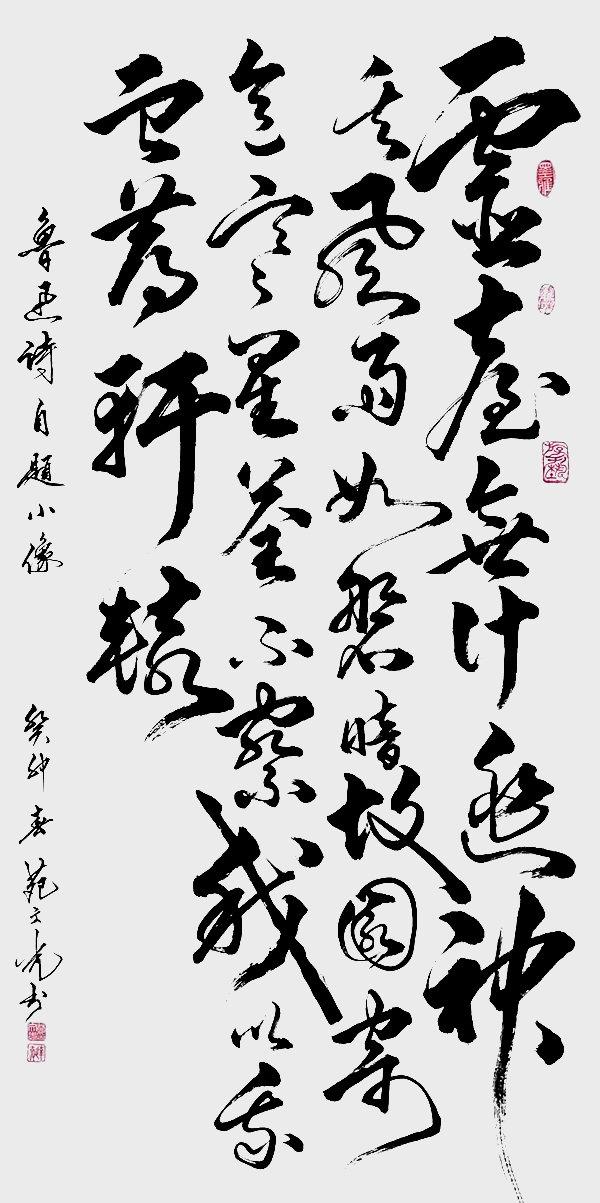 靈臺無計逃神
矢風雨如磐暗故園寄
意寒星荃不察我以我
血薦軒轅
魯迅詩自題小像 癸卯春 苑光书